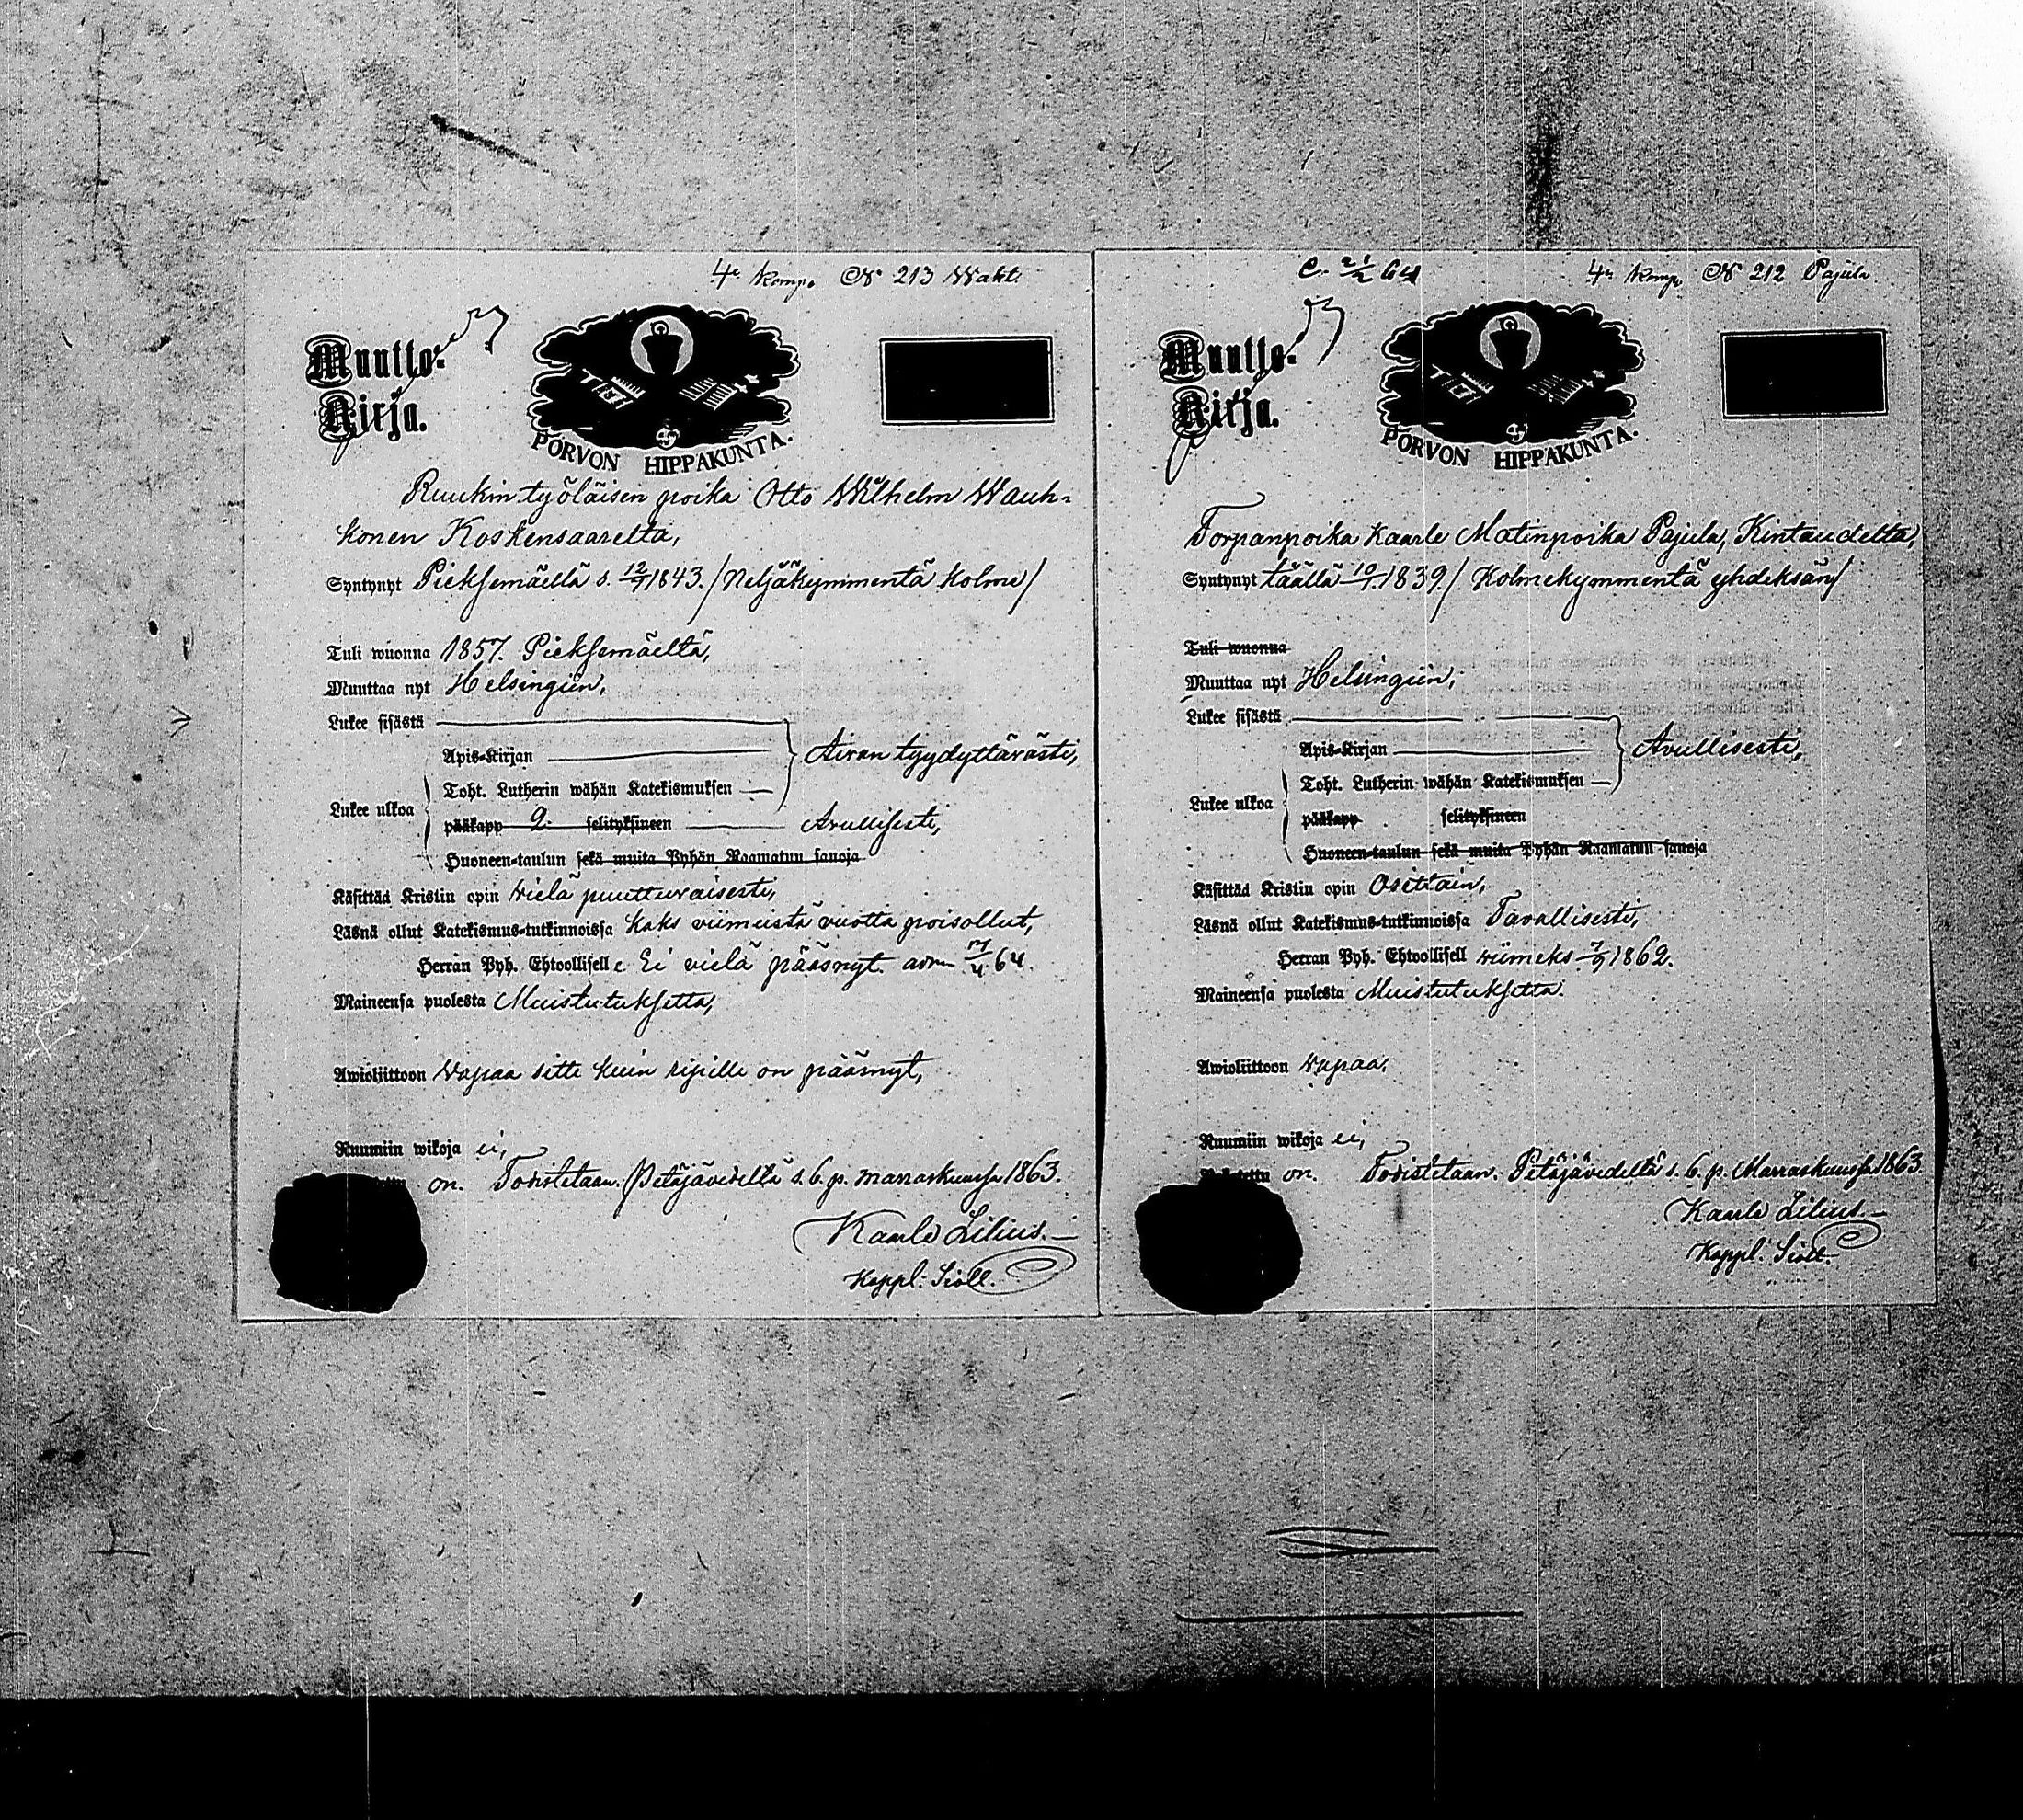 4e Komp. No 213 Wakt.
Muutto-
Kirja.
PORVON HIPPAKUNTA.
Ruukin työläisen poika Otto Wilhelm Wauh-
konen Koskensaarelta,
Syntynyt Pieksemäellä s. 12/9 1843. / Neljäkymmentä kolme /
Tuli wuonna 1857. Pieksemäeltä,
Muuttaa nyt Helsingiin,
Lukee sisästä
Apis-Kirjan
Aivan tyydyttävästi,
Toht. Lutherin wähän Katekismuksen
Lukee ulkoa
pääkapp 2. selityksineen Avullisesti,
Huoneen-taulun sekä muita Pyhän Raamatun sanoja
Käsittäd Kristin opin wielä puuttuvaisesti,
Läsnä ollut Katekismus-tutkinnoissa kaks viimeistä vuotta poisollut,
Herran Pyh. Ehtoollisell e Ei vielä päässyt. adm 17/4 64.
Maineensa puolesta Muistutuksetta,
Awioliittoon Vapaa sitte kuin ripille on päässyt,
Ruumiin wikoja ei,
on. Todistetaan. Petäjävedellä s. 6. p. marraskuussa 1863.
Kaarlo Lilius.
Kappl. Siall.
C. 21/2 64
4e Komp. No 212 Pajula
Muutto-
Kirja.
PORVON HIPPAKUNTA.
Torpanpoika Kaarle Matinpoika Pajula, Kintaudelta,
Syntynyt täällä 10/7 1839. / Kolmekymmentä yhdeksän /
Tuli wuonna
Muuttaa nyt Helsingiin,
Lukee sisästä
Apis-Kirjan
Avullisesti,
Toht. Lutherin wähän Katekismuksen
Lukee ulkoa
pääkapp selityksineen
Huoneen-taulun sekä muita Pyhän Raamatun sanoja
Käsittäd Kristin opin Osittain,
Läsnä ollut Katekismus-tutkinnoissa Tavallisesti,
Herran Pyh. Ehtoollisell viimeks 7/9 1862.
Maineensa puolesta Muistutuksetta.
Awioliittoon Vapaa,
Ruumiin wikoja ei,
on. Todistetaan. Petäjävedellä s. 6. p. Marraskuussa 1863.
Kaarlo Lilius.
Kappl. Siall.